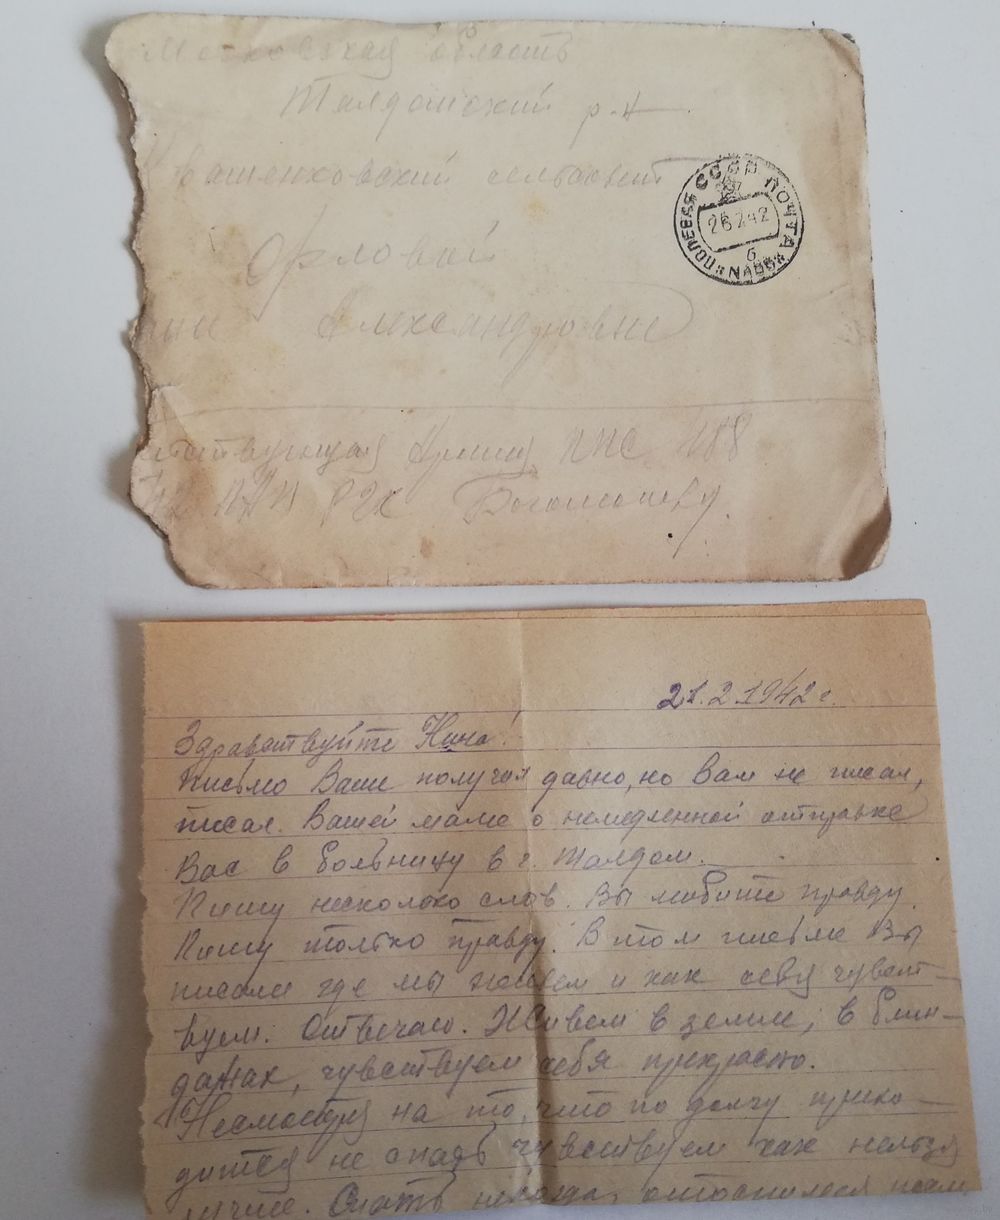 Московская область
Талдомский р-н
Квашенковский сельсовет
Орловой
Александровне
СССР ПОЛЕВАЯ ПОЧТА
26 2 42
б
Действующая Армия ППС
21.2.1942 г.
Здравствуйте Нина!
Письмо Ваше получил давно, но Вам не писал,
писал Вашей маме о немедленной отправке
Вас в больницу в г. Талдом.
Пишу несколько слов. Вы любите правду.
Пишу только правду. В том письме Вы
писали где мы живем и как себя чувст-
вуем. Отвечаю. Живем в земле, в блин-
дажах, чувствуем себя прекрасно.
Несмотря на то, что по долгу прихо-
дится не спать чувствуем как нельзя
лучше. Спать некогда, отоспимся